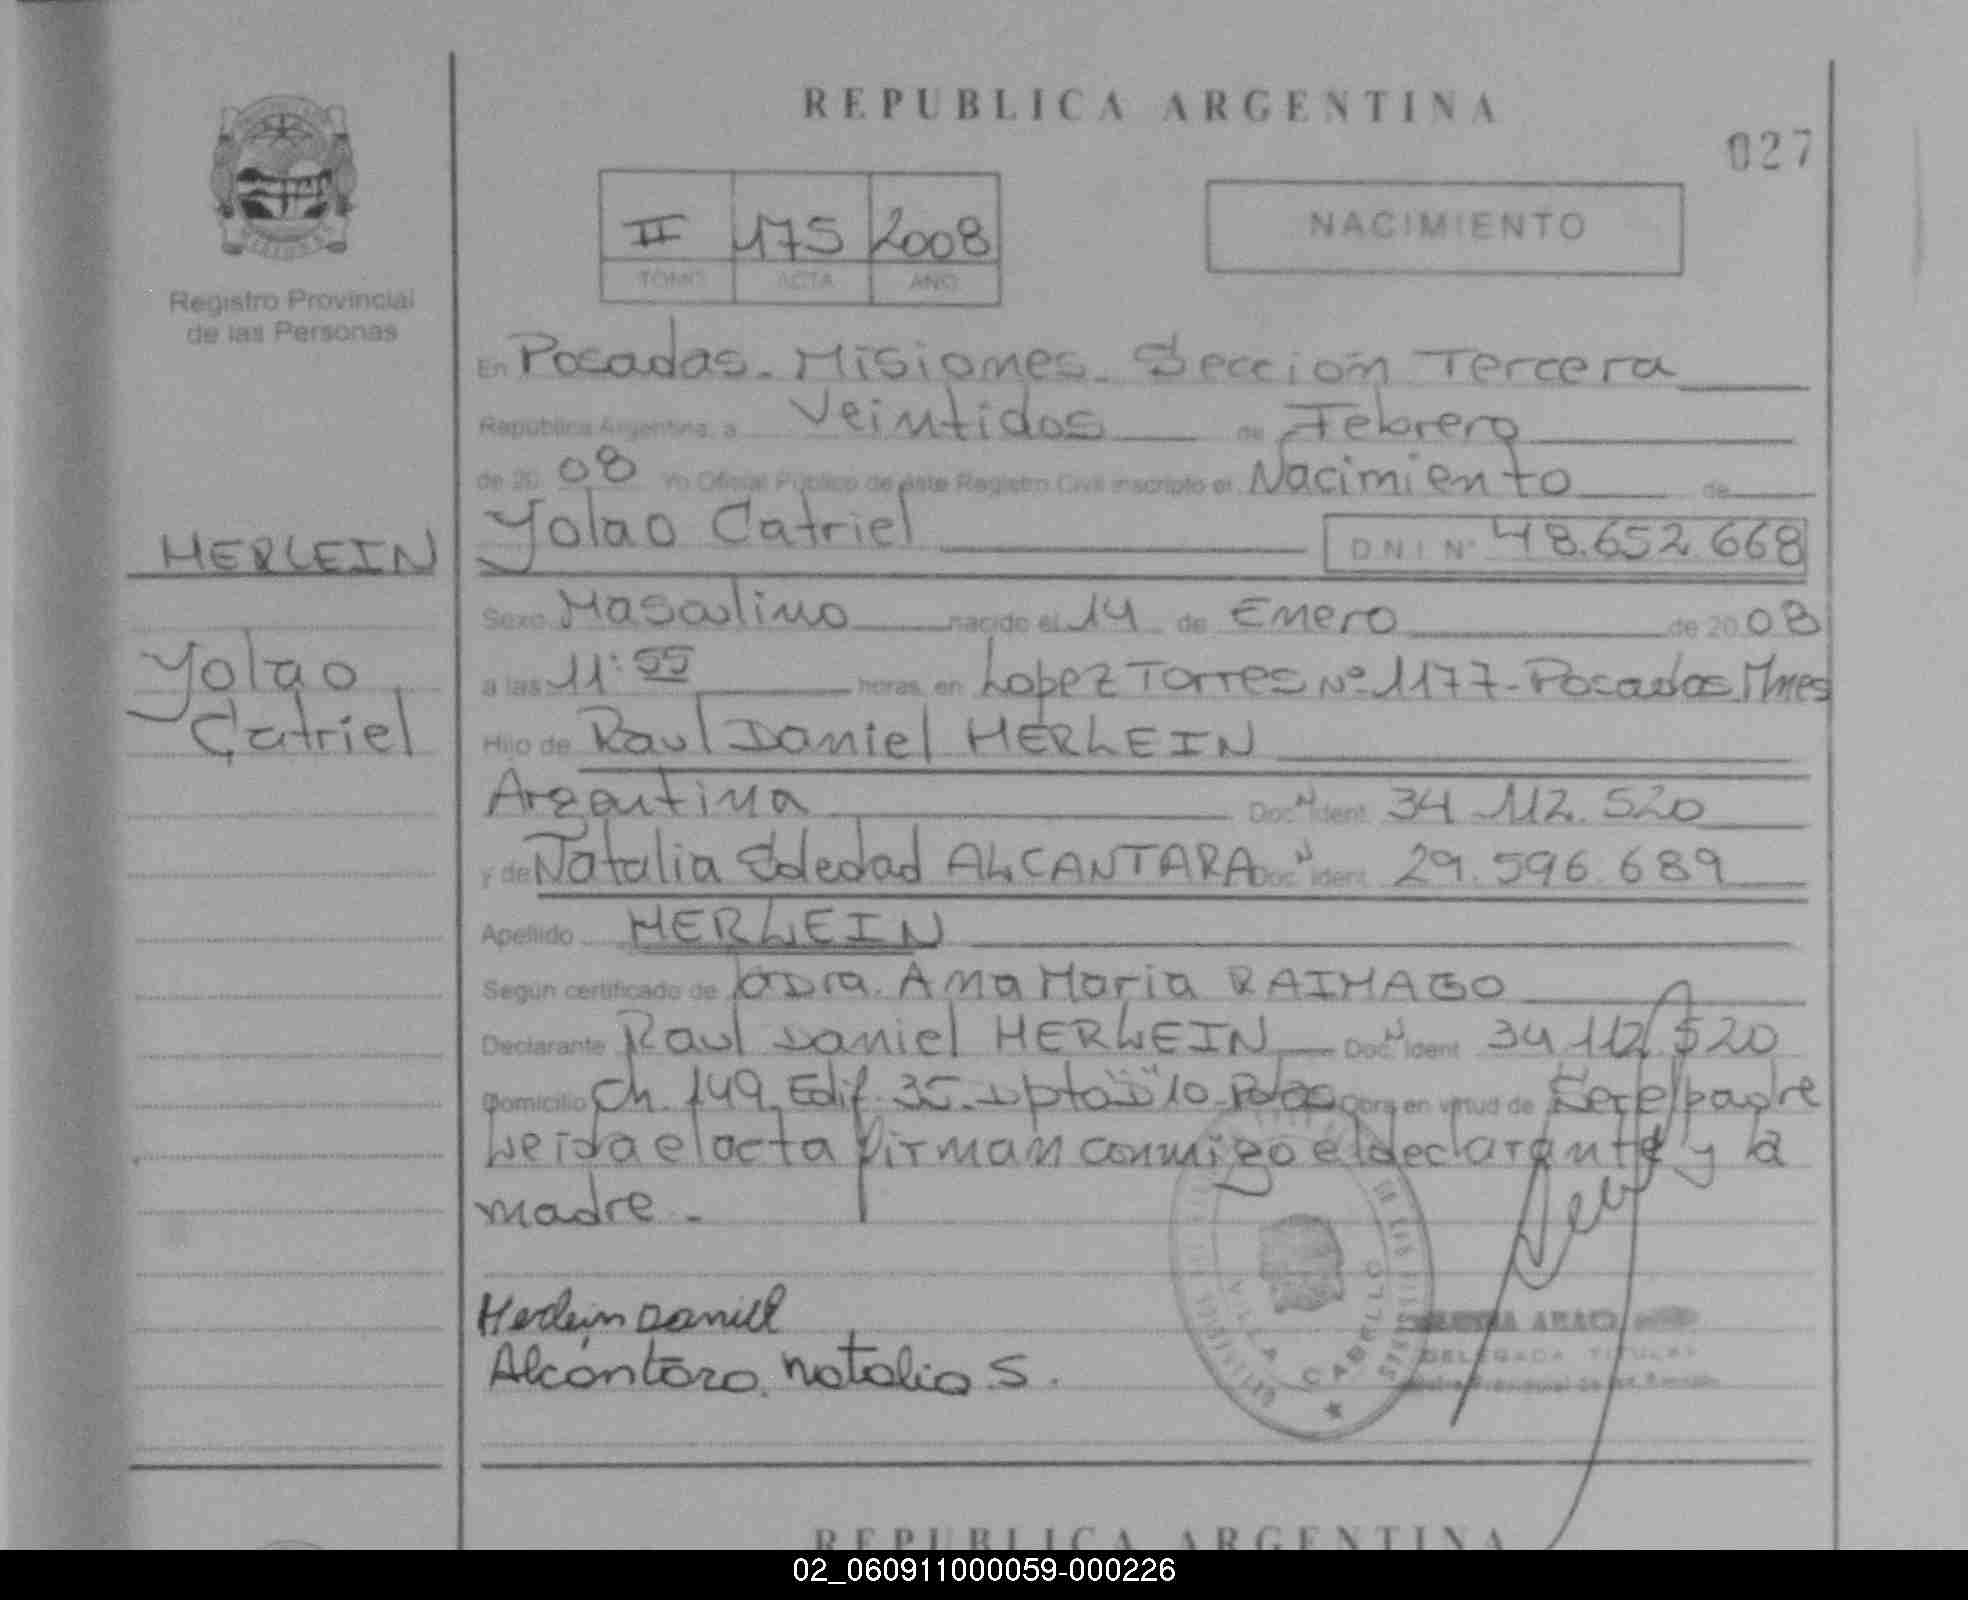 REPUBLICA ARGENTINA
027
II 175 2008
TOMO ACTA AÑO
NACIMIENTO
Registro Provincial
de las Personas
En Posadas - Misiones - Sección Tercera
República Argentina, a Veintidos de Febrero
de 20 08 Yo Oficial Público de este Registro Civil inscripto el Nacimiento de
Yolao Catriel DNI Nº 48.652.668
HERLEIN
Yolao
Catriel
Sexo Masculino nacido el 14 de Enero de 20 08
a las 11:55 horas, en Lopez Torres Nº 1177 - Posadas Mnes
Hijo de Raul Daniel HERLEIN
Argentina Doc. N Ident 34.112.520
y de Natalia Soledad ALCANTARA Doc. N Ident 29.596.689
Apellido HERLEIN
Según certificado de Dra. Ana Maria RAIMAGO
Declarante Raul Daniel HERLEIN Doc. N Ident 34.112.520
Domicilio Ch. 149 Edif. 35 - Dpto "D" 10 - Obra en virtud de Ser el padre
Leida el acta firman conmigo el declarante y la
madre -
Herlein Daniel
Alcántara, Natalia S.
VILLA CABELLO
DELEGADA TITULAR
REPUBLICA ARGENTINA
02_060911000059-000226